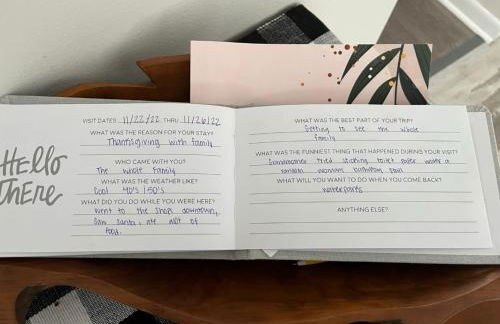 Hello
There
VISIT DATES 11/22/22 THRU 11/26/22
WHAT WAS THE REASON FOR YOUR STAY?
Thanksgiving with family
WHO CAME WITH YOU?
The whole family
WHAT WAS THE WEATHER LIKE?
Cool 40's / 50's
WHAT DID YOU DO WHILE YOU WERE HERE?
Went to the shops downtown,
saw Santa, ate alot of
food.
WHAT WAS THE BEST PART OF YOUR TRIP?
Getting to see the whole
family
WHAT WAS THE FUNNIEST THING THAT HAPPENED DURING YOUR VISIT?
tried sticking toilet paper
random womans
WHAT WILL YOU WANT TO DO WHEN YOU COME BACK?
waterparks
ANYTHING ELSE?